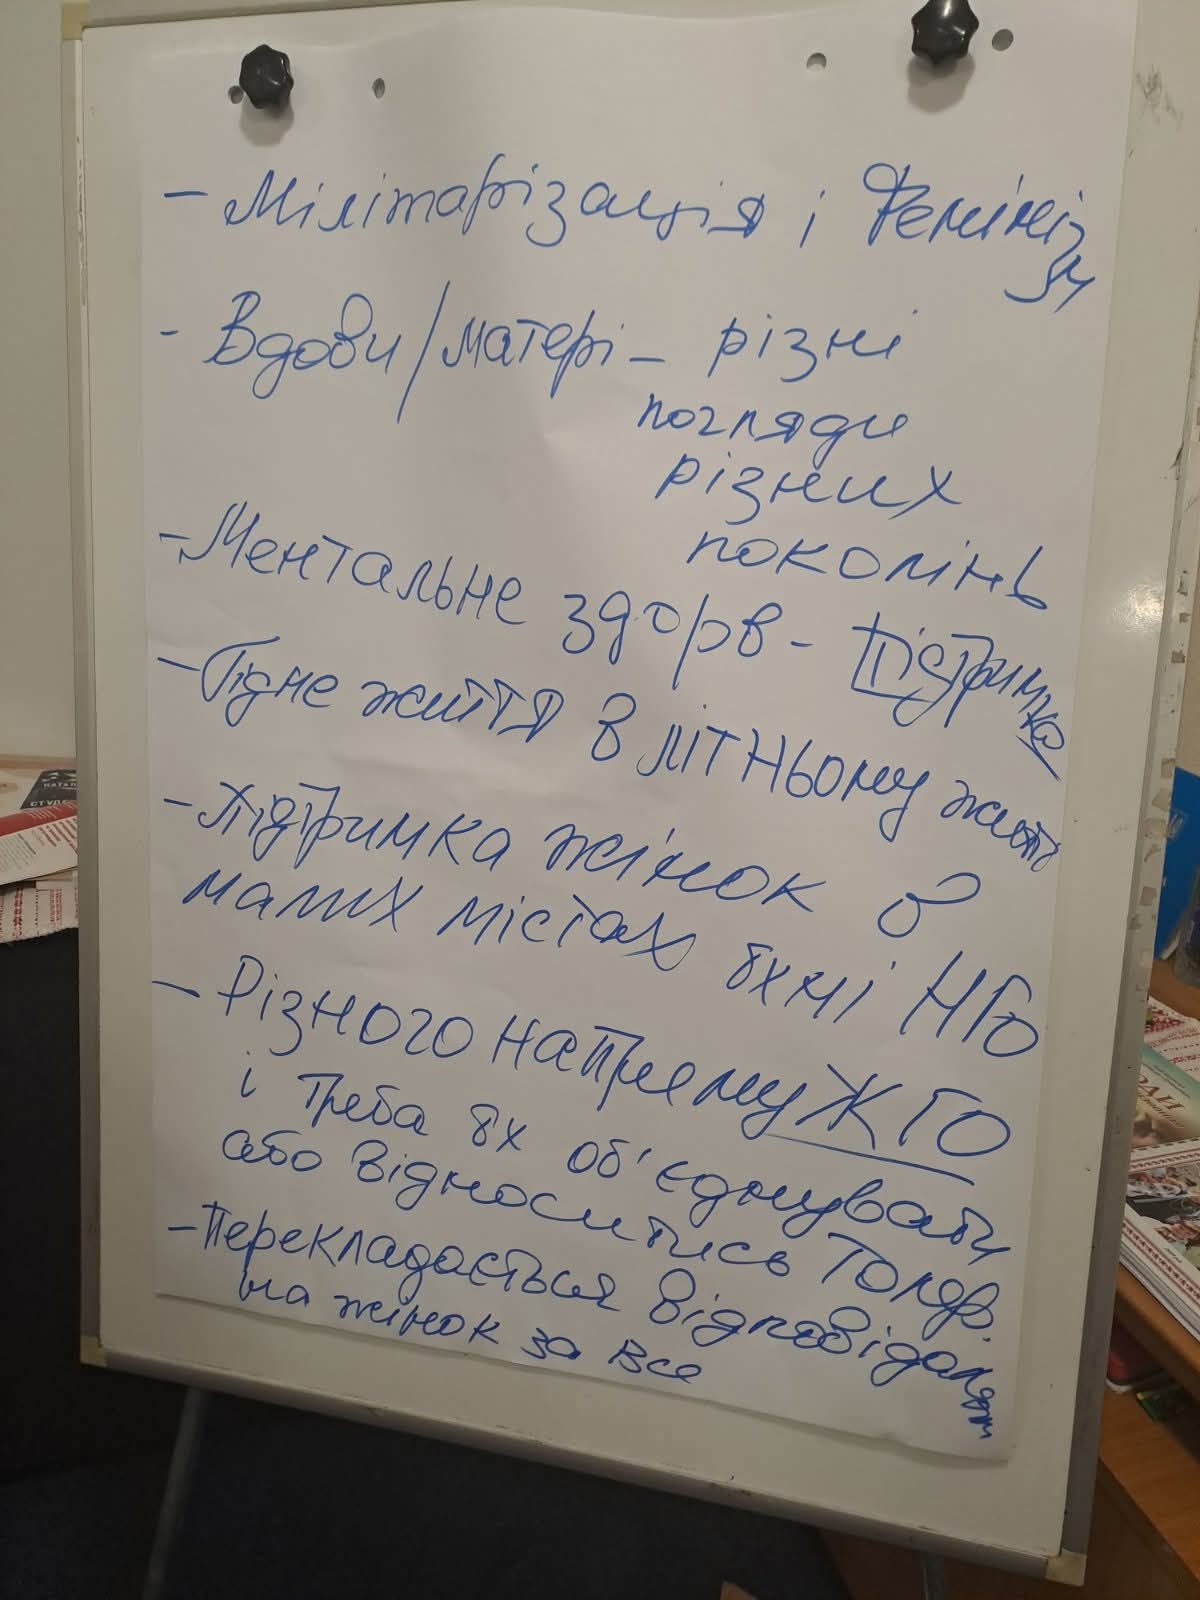 - Мілітарізація і Фемініз
м
- Вдови/матері - різні
погляди
різних
поколінь
- Ментальне здоров - Підтримка
- Гідне життя в літньому житті
- Підтримка жінок в
малих містах їхні НГО
- Різного напряму ЖГО
і треба їх об'єднувати
або відноситись толер.
- Перекладається відповідальн
на жінок за все